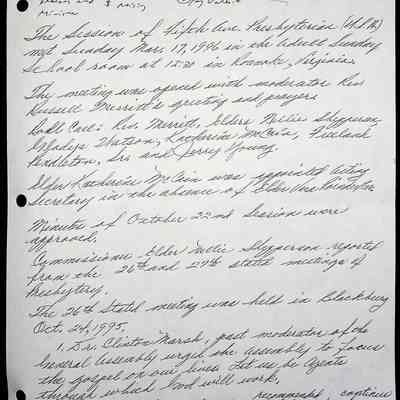 The Session of Fifth Ave. Presbyterian
met Sunday Mar. 17, 1996 in the Adult Sunday
School room at 12:30 in Roanoke, Virginia.
The meeting was opened with moderator Rev.
Russell Merritt's greeting and prayer.
Roll Call: Rev. Merritt, Elders Nellie
Gladys Watson, Katherine McCain,
Pendleton, Srs and Jerry Young.
Elder Katherine McCain was appointed acting
Secretary in the absence of Elder
Minutes of October 22nd Session were
approved.
Commissioner Elder Nellie reported
from the 26th and 27th stated meetings of
Presbytery.
The 26th Stated meeting was held in Blacksburg
Oct. 24, 1995.
1. Dr. Clinton Marsh, past moderator of the
General Assembly urged the assembly to focus
the gospel on our lives. Let us be Agents
through which God will work.
recommended, continue